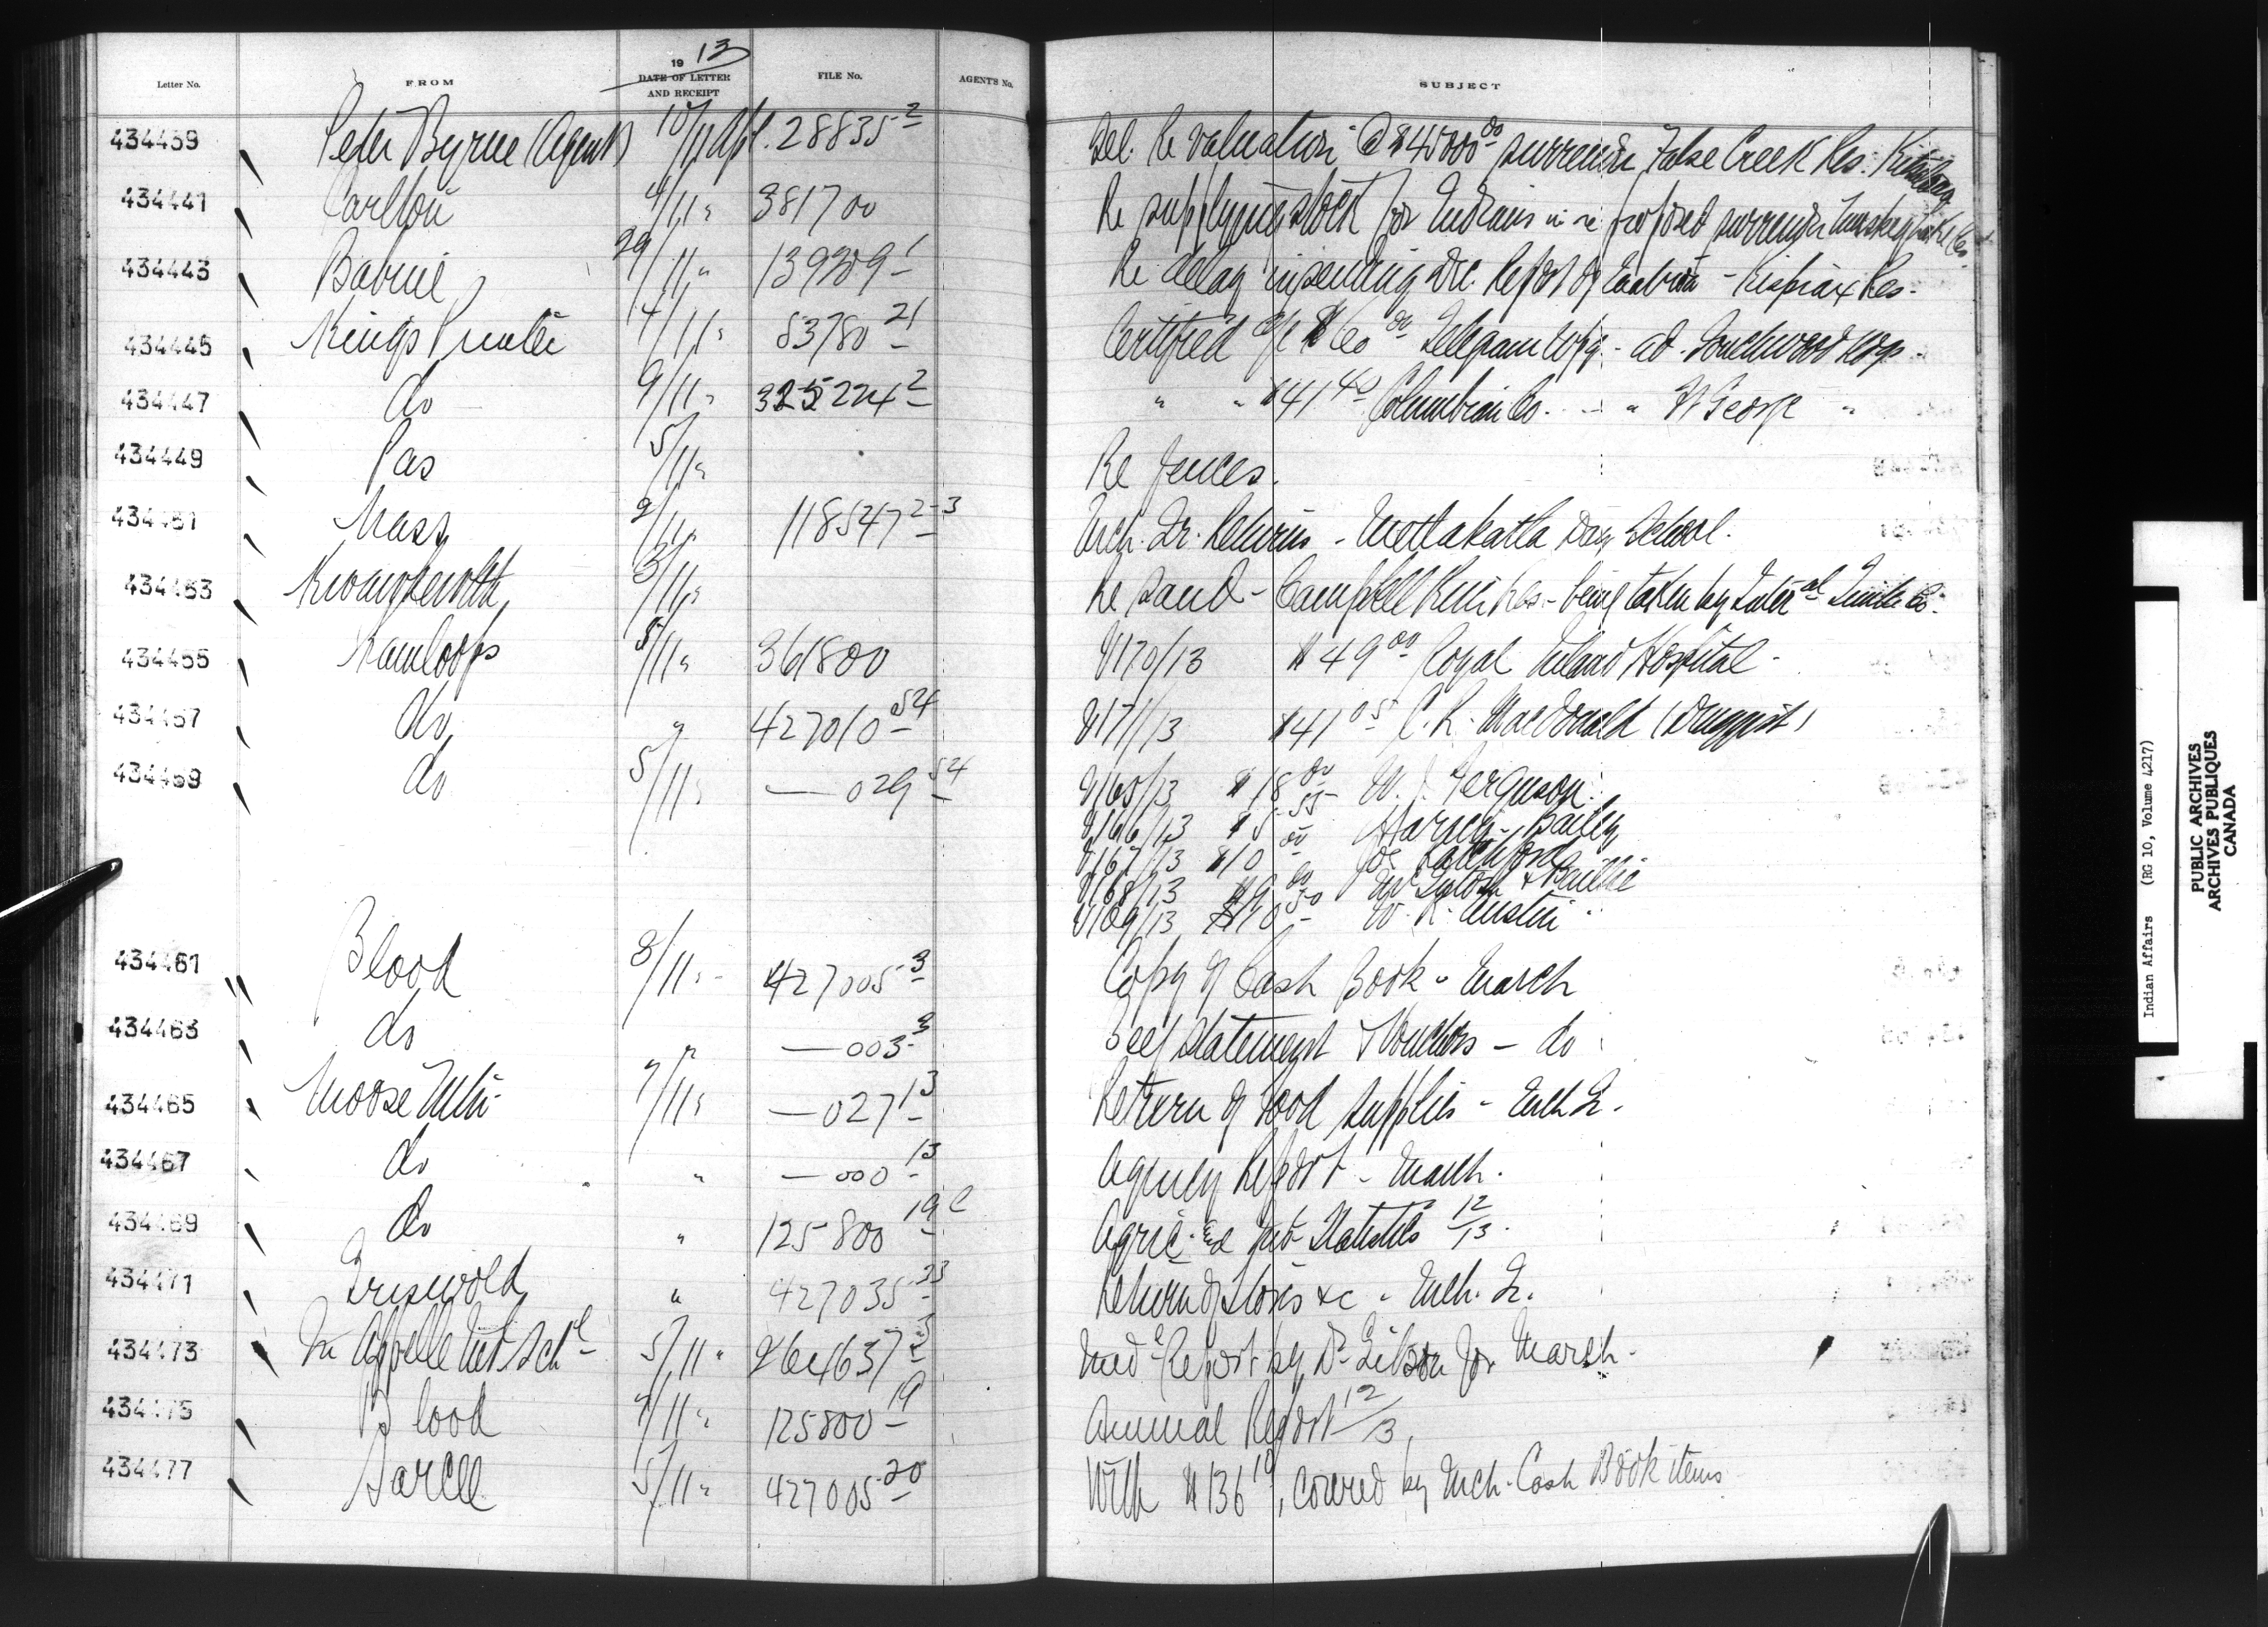 Letter No. FROM 1913 DATE OF LETTER AND RECEIPT FILE No. AGENT'S No. SUBJECT
434439 Peter Byrne (Agent) 10/11 Apl. 28835-2 Tel. Re valuation @ $45000.00 surrender False Creek Res. Kitsilano
434441 Carlton 4/11 " 381700 Re supplying stock for Indians in re proposed surrender Muskeg Lake Res.
434443 Babine 29/11 " 139309-1 Re delay in sending Dec. Report of - Kispiax Res.
434445 Kings Printer 4/11 " 83780-21 Certified a/c $ 60.00 Telegram - ad - Touchwood
434447 do 9/11 " 325224-2 " " $41.40 Columbian Co. " Ft George "
434449 Pas 5/11 " Re fences.
434451 Nass 2/11 " 118547-2-3 Mch. Qr. Returns - Metlakatla Day School.
434453 Kwawkewlth 3/11 " Re sand - Campbell River Res. - being taken by Inter al Timber Co.
434455 Kamloops 5/11 " 361800 V170/13 $49.00 Royal Inland Hospital -
434457 do " 427010-524 V171/13 $41.05 C. R. MacDonald (Druggist)
434459 do 5/11 " — 029-524 V165/13 $18.00 W. J. Ferguson
V166/13 $5.55 Harvey - Bailey
V167/13 $10.00
V168/13 McIntosh & Baillie
V169/13 $10.50 W. R. Austin
434461 Blood 8/11 " 427005-3 Copy of Cash Book - March
434463 do " — 003-3 Beef Statement & Vouchers - do
434465 Moose Mtn 7/11 " — 027-13 Return of Food Supplies - Mch Qr.
434467 do " — 000-13 Agency Report - March.
434469 do " 125800-19c Agric. & Ind Statistics 12/13.
434471 Griswold " 427035-33 Return of Stores &c - Mch. Qr.
434473 Qu Appelle Ind Schl 5/11 " 264637-3 Med l Report by Dr for March -
434475 Blood 7/11 " 125800-19 Annual Report 12/13
434477 Sarcee 5/11 " 427005-20 With $136.10, covered by Mch. Cash Book items
Indian Affairs (RG 10, Volume 4217)
PUBLIC ARCHIVES
ARCHIVES PUBLIQUES
CANADA